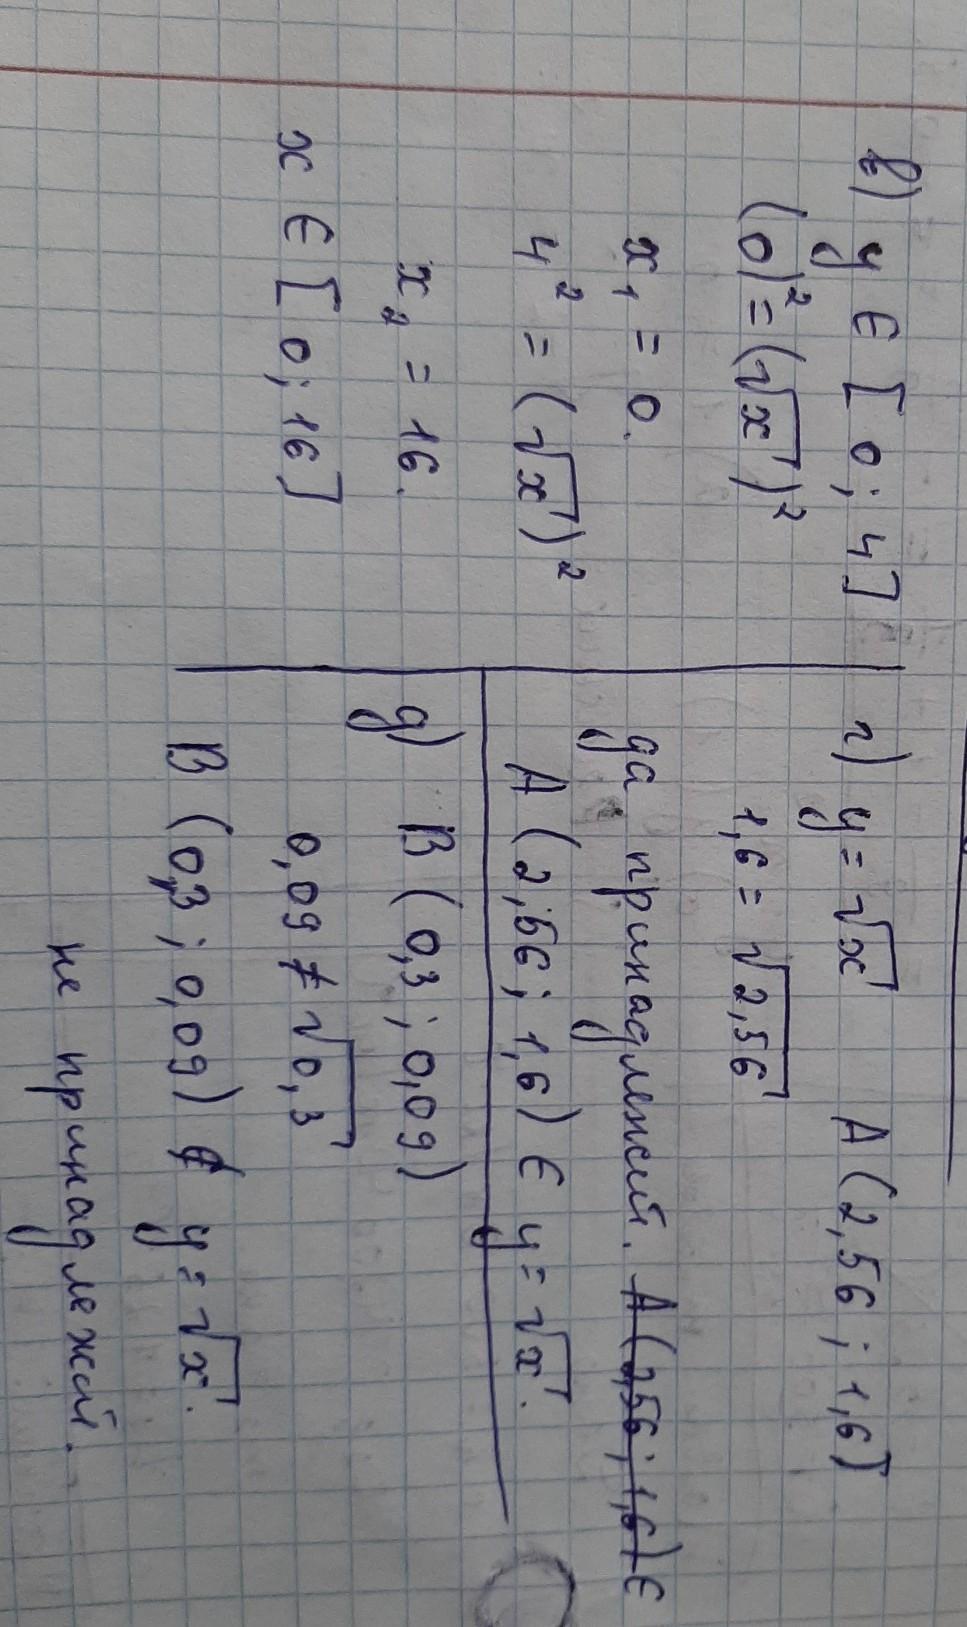 в) y ∈ [0; 4]
(0)² = (√x)²
x₁ = 0.
4² = (√x)²
x₂ = 16.
x ∈ [0; 16]
г) y = √x A (2,56; 1,6)
1,6 = √2,56
да принадлежит. A (2,56; 1,6) ∈
A (2,56; 1,6) ∈ y = √x.
д) B (0,3; 0,09)
0,09 ≠ √0,3
B (0,3; 0,09) ∉ y = √x.
не принадлежит.